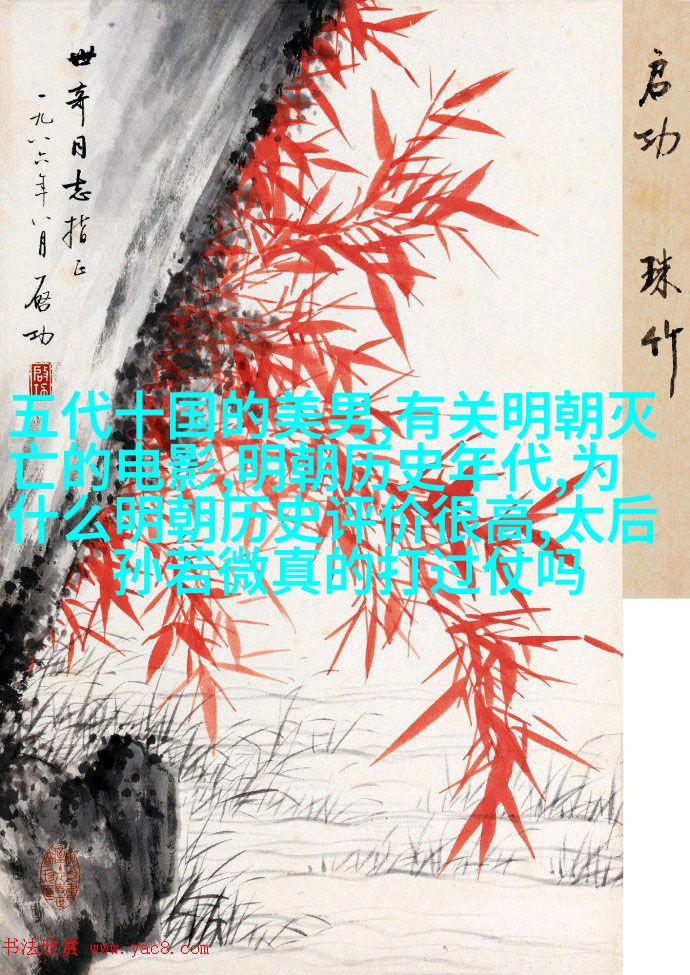 启功 珠竹
世奇同志指正
一九八六年八月启功
五代十国的美男,有关明朝灭
亡的电影,明朝历史年代,为
什么明朝历史评价很高,太后
孙若微真的打过仗吗
书法欣赏 www.yac8.com